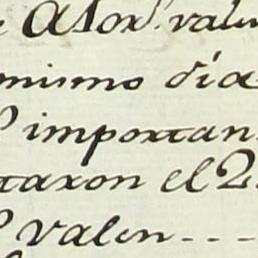 Ator. valu
mismo día
importan
taron el 2
valen - - -